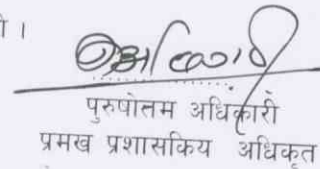 । 
पुरुषोत्तम अधिकारी
प्रमख प्रशासकिय अधिकृत